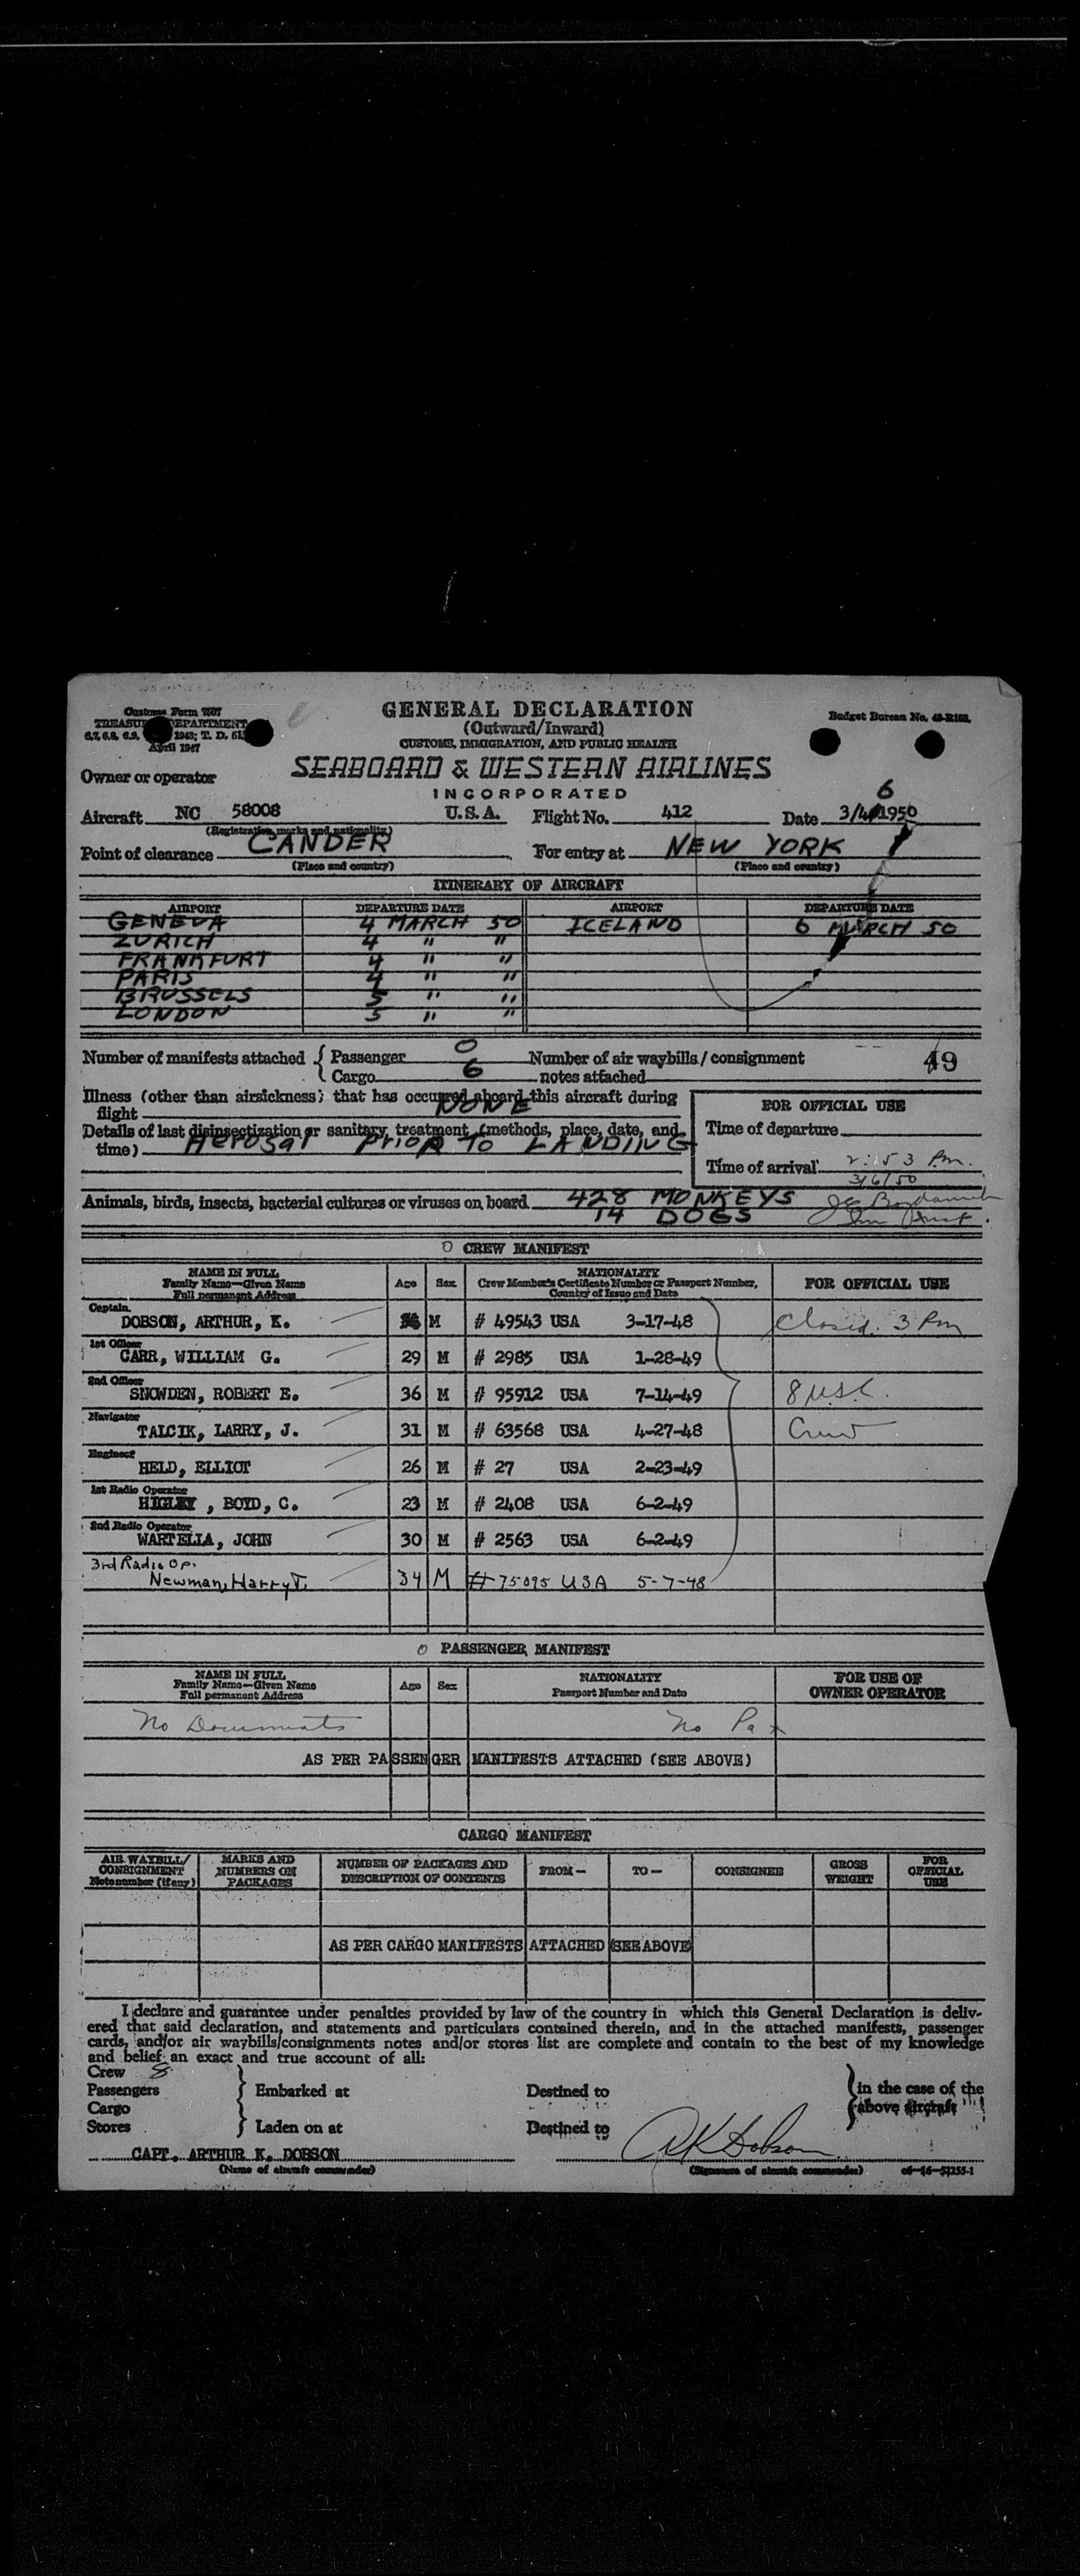 Customs Form 7507
TREASURY DEPARTMENT
6.7, 6.8, 6.9, 1943; T. D. 51
April 1947
GENERAL DECLARATION
(Outward/Inward)
CUSTOMS, IMMIGRATION, AND PUBLIC HEALTH
Budget Bureau No.
Owner or operator
SEABOARD & WESTERN AIRLINES
INCORPORATED
Aircraft NC 58008 U.S.A. Flight No. 412 Date 3/4/1950
6
(Registration marks and nationality)
Point of clearance GANDER For entry at NEW YORK
(Place and country) (Place and country)
ITINERARY OF AIRCRAFT
AIRPORT DEPARTURE DATE AIRPORT DEPARTURE DATE
GENEVA 4 MARCH 50 ICELAND 6 MARCH 50
ZURICH 4 " "
FRANKFURT 4 " "
PARIS 4 " "
BRUSSELS 5 " "
LONDON 5 " "
Number of manifests attached { Passenger 0 Number of air waybills/consignment 49
Cargo 6 notes attached
Illness (other than airsickness) that has occurred aboard this aircraft during
flight NONE
FOR OFFICIAL USE
Details of last disinsectization or sanitary treatment (methods, place, date, and
time) Aerosal PRIOR TO LANDING
Time of departure
Time of arrival 2:53 Pm.
3/6/50
Animals, birds, insects, bacterial cultures or viruses on board 428 MONKEYS
14 DOGS
0 CREW MANIFEST
NAME IN FULL
Family Name—Given Name
Full permanent Address
Age Sex
NATIONALITY
Crew Member's Certificate Number or Passport Number,
Country of Issue and Date
FOR OFFICIAL USE
Captain
DOBSON, ARTHUR, K. M # 49543 USA 3-17-48 Closed. 3 Pm
1st Officer
CARR, WILLIAM G. 29 M # 2985 USA 1-28-49
2nd Officer
SNOWDEN, ROBERT E. 36 M # 95912 USA 7-14-49 8 USC.
Navigator
TALCIK, LARRY, J. 31 M # 63568 USA 4-27-48 Crew
Engineer
HELD, ELLIOT 26 M # 27 USA 2-23-49
1st Radio Operator
HIGLEY , BOYD, C. 23 M # 2408 USA 6-2-49
2nd Radio Operator
WARTELLA, JOHN 30 M # 2563 USA 6-2-49
3rd Radio Op.
Newman, Harry T. 34 M # 75095 USA 5-7-48
0 PASSENGER MANIFEST
NAME IN FULL
Family Name—Given Name
Full permanent Address
Age Sex
NATIONALITY
Passport Number and Date
FOR USE OF
OWNER OPERATOR
No Documents No Pax
AS PER PASSENGER MANIFESTS ATTACHED (SEE ABOVE)
CARGO MANIFEST
AIR WAYBILL/
CONSIGNMENT
Note number (if any)
MARKS AND
NUMBERS ON
PACKAGES
NUMBER OF PACKAGES AND
DESCRIPTION OF CONTENTS
FROM— TO— CONSIGNEE
GROSS
WEIGHT
FOR
OFFICIAL
USE
AS PER CARGO MANIFESTS ATTACHED (SEE ABOVE)
I declare and guarantee under penalties provided by law of the country in which this General Declaration is deliv-
ered that said declaration, and statements and particulars contained therein, and in the attached manifests, passenger
cards, and/or air waybills/consignments notes and/or stores list are complete and contain to the best of my knowledge
and belief an exact and true account of all:
Crew 8
Passengers } Embarked at Destined to } in the case of the
Cargo above aircraft
Stores } Laden on at Destined to
CAPT. ARTHUR K. DOBSON AK Dobson
(Name of aircraft commander) (Signature of aircraft commander)